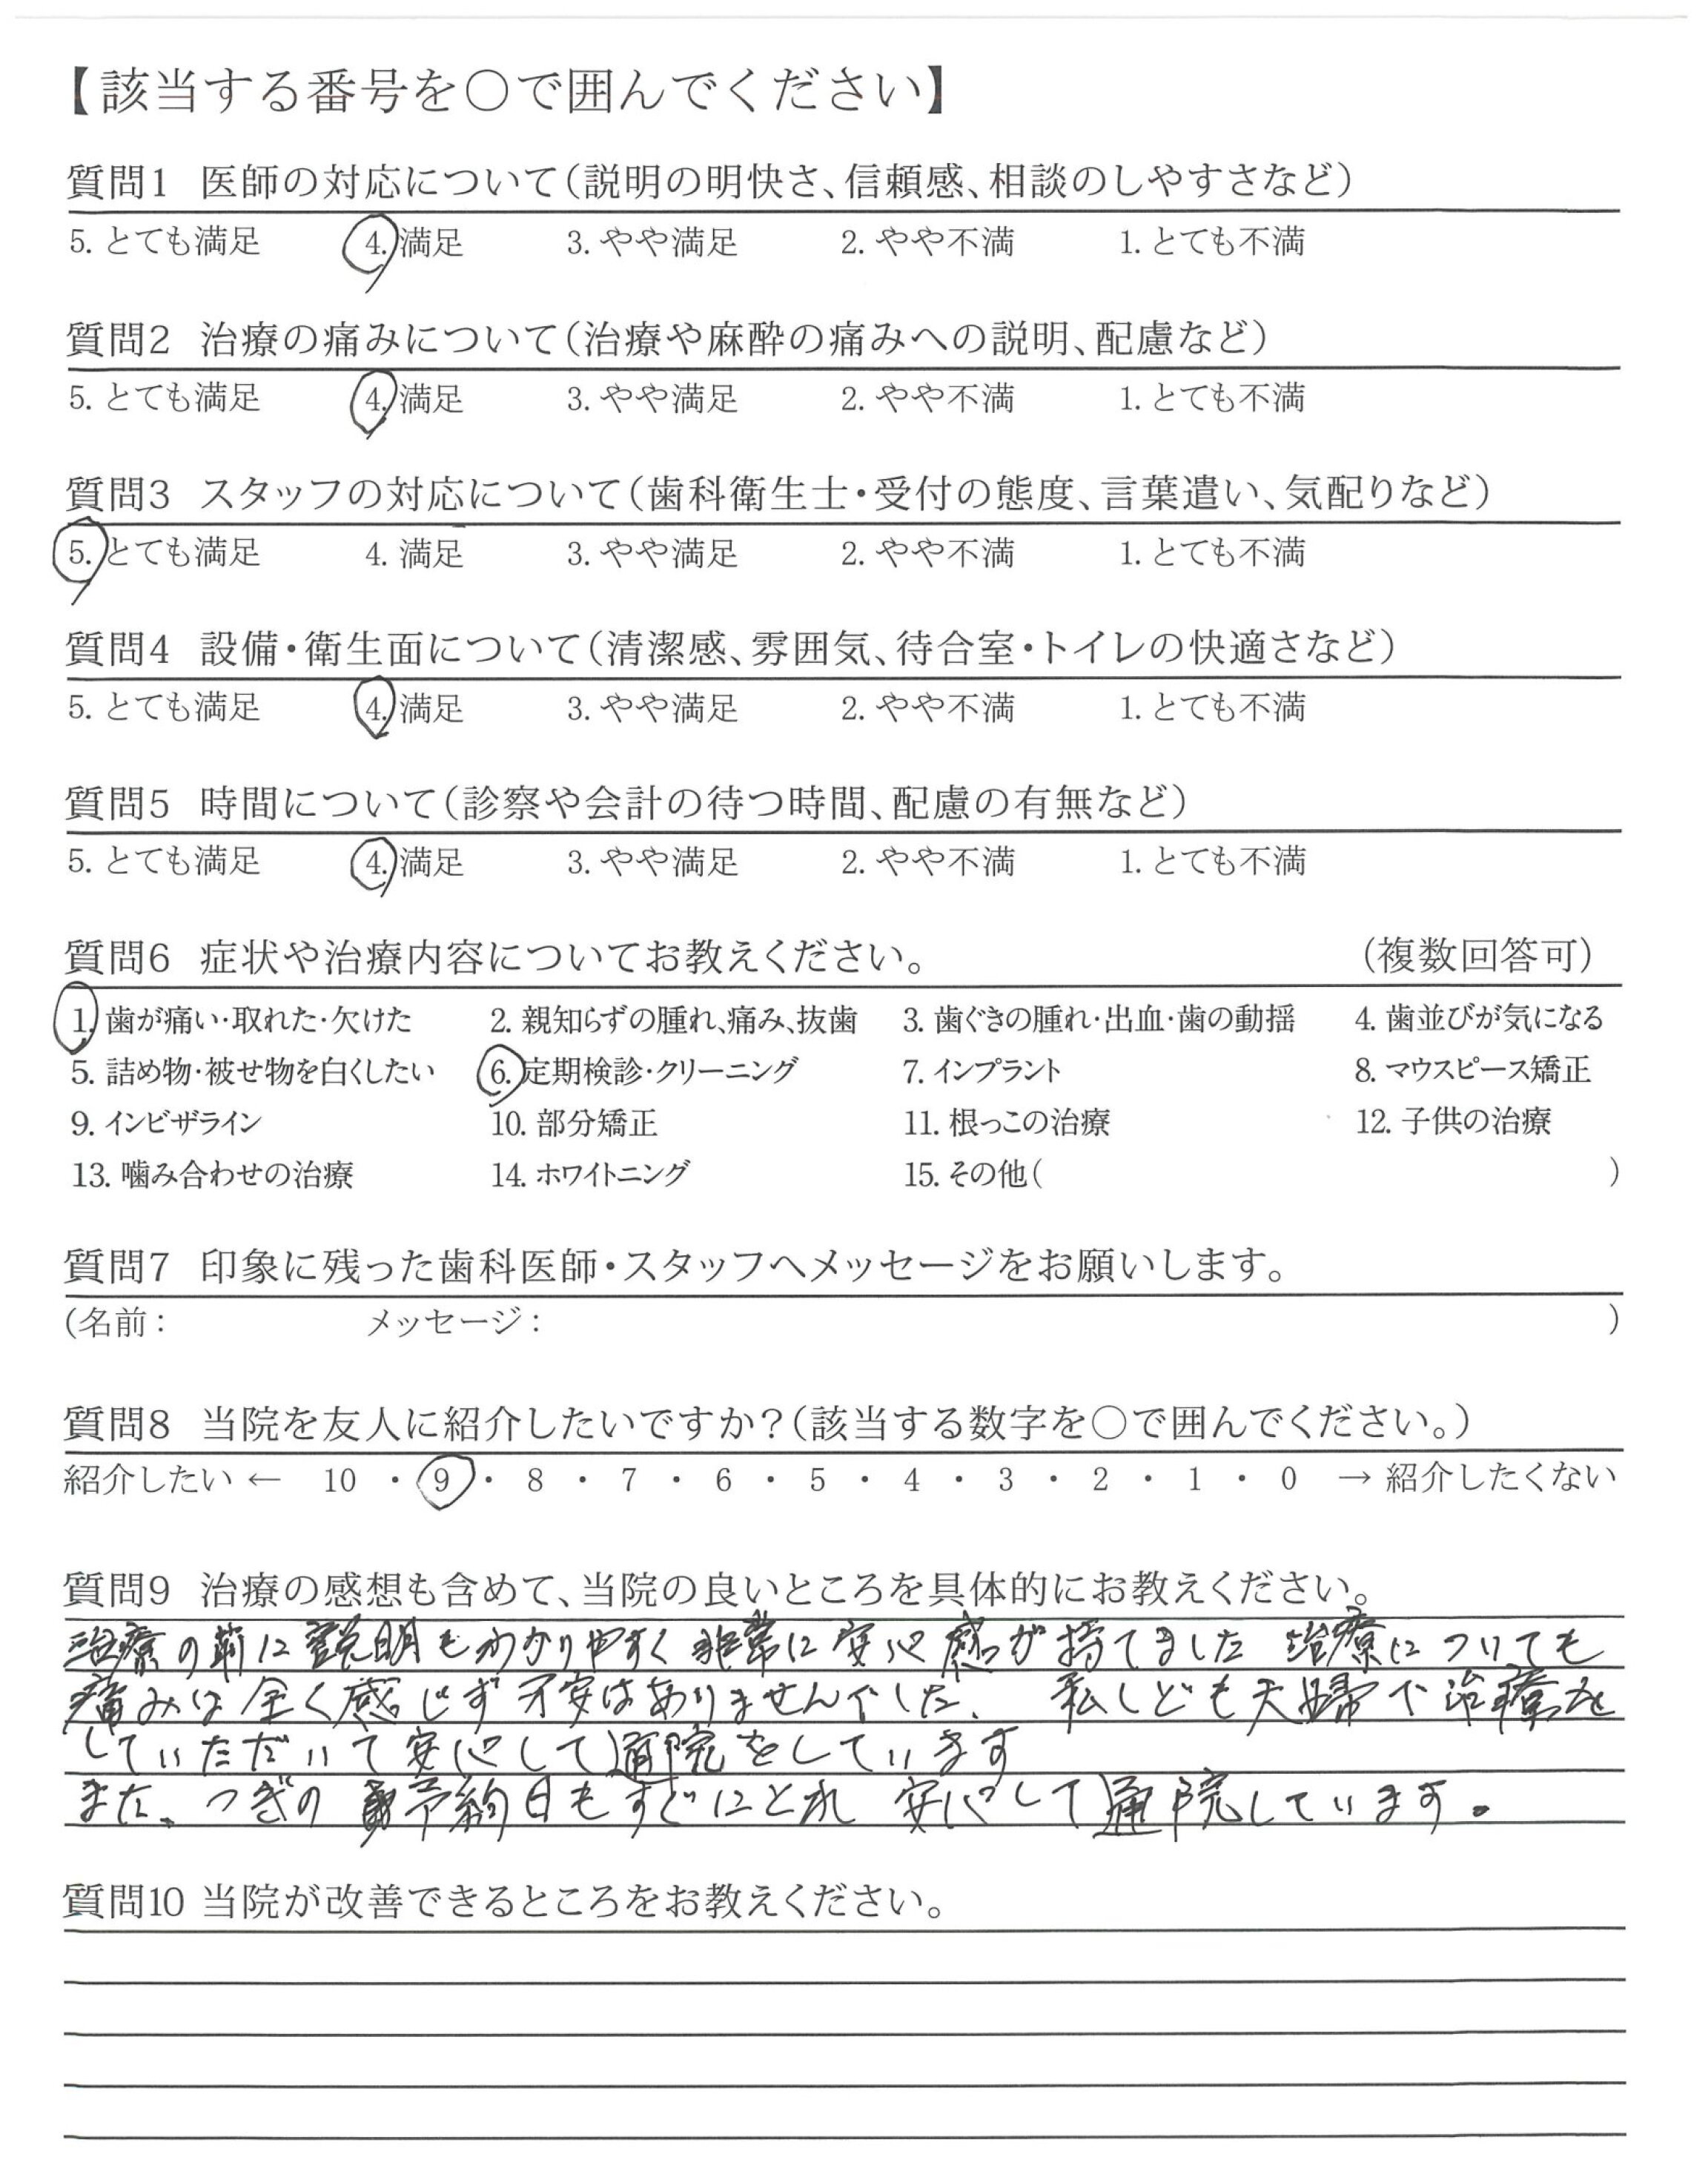 【該当する番号を○で囲んでください】
質問1 医師の対応について(説明の明快さ、信頼感、相談のしやすさなど)
5. とても満足 4. 満足 3. やや満足 2. やや不満 1. とても不満
質問2 治療の痛みについて(治療や麻酔の痛みへの説明、配慮など)
5. とても満足 4. 満足 3. やや満足 2. やや不満 1. とても不満
質問3 スタッフの対応について(歯科衛生士・受付の態度、言葉遣い、気配りなど)
5. とても満足 4. 満足 3. やや満足 2. やや不満 1. とても不満
質問4 設備・衛生面について(清潔感、雰囲気、待合室・トイレの快適さなど)
5. とても満足 4. 満足 3. やや満足 2. やや不満 1. とても不満
質問5 時間について(診察や会計の待つ時間、配慮の有無など)
5. とても満足 4. 満足 3. やや満足 2. やや不満 1. とても不満
質問6 症状や治療内容についてお教えください。 (複数回答可)
1. 歯が痛い・取れた・欠けた 2. 親知らずの腫れ、痛み、抜歯 3. 歯ぐきの腫れ・出血・歯の動揺 4. 歯並びが気になる
5. 詰め物・被せ物を白くしたい 6. 定期検診・クリーニング 7. インプラント 8. マウスピース矯正
9. インビザライン 10. 部分矯正 11. 根っこの治療 12. 子供の治療
13. 噛み合わせの治療 14. ホワイトニング 15. その他( )
質問7 印象に残った歯科医師・スタッフへメッセージをお願いします。
(名前: メッセージ: )
質問8 当院を友人に紹介したいですか?(該当する数字を○で囲んでください。)
紹介したい ← 10 ・ 9 ・ 8 ・ 7 ・ 6 ・ 5 ・ 4 ・ 3 ・ 2 ・ 1 ・ 0 → 紹介したくない
質問9 治療の感想も含めて、当院の良いところを具体的にお教えください。
治療の前に説明もわかりやすく非常に安心感が持てました 治療についても
痛みは全く感じず不安はありませんでした、 私しども夫婦で治療を
していただいて安心して通院をしています
また、つぎの予約日もすぐにとれ 安心して通院しています。
質問10 当院が改善できるところをお教えください。